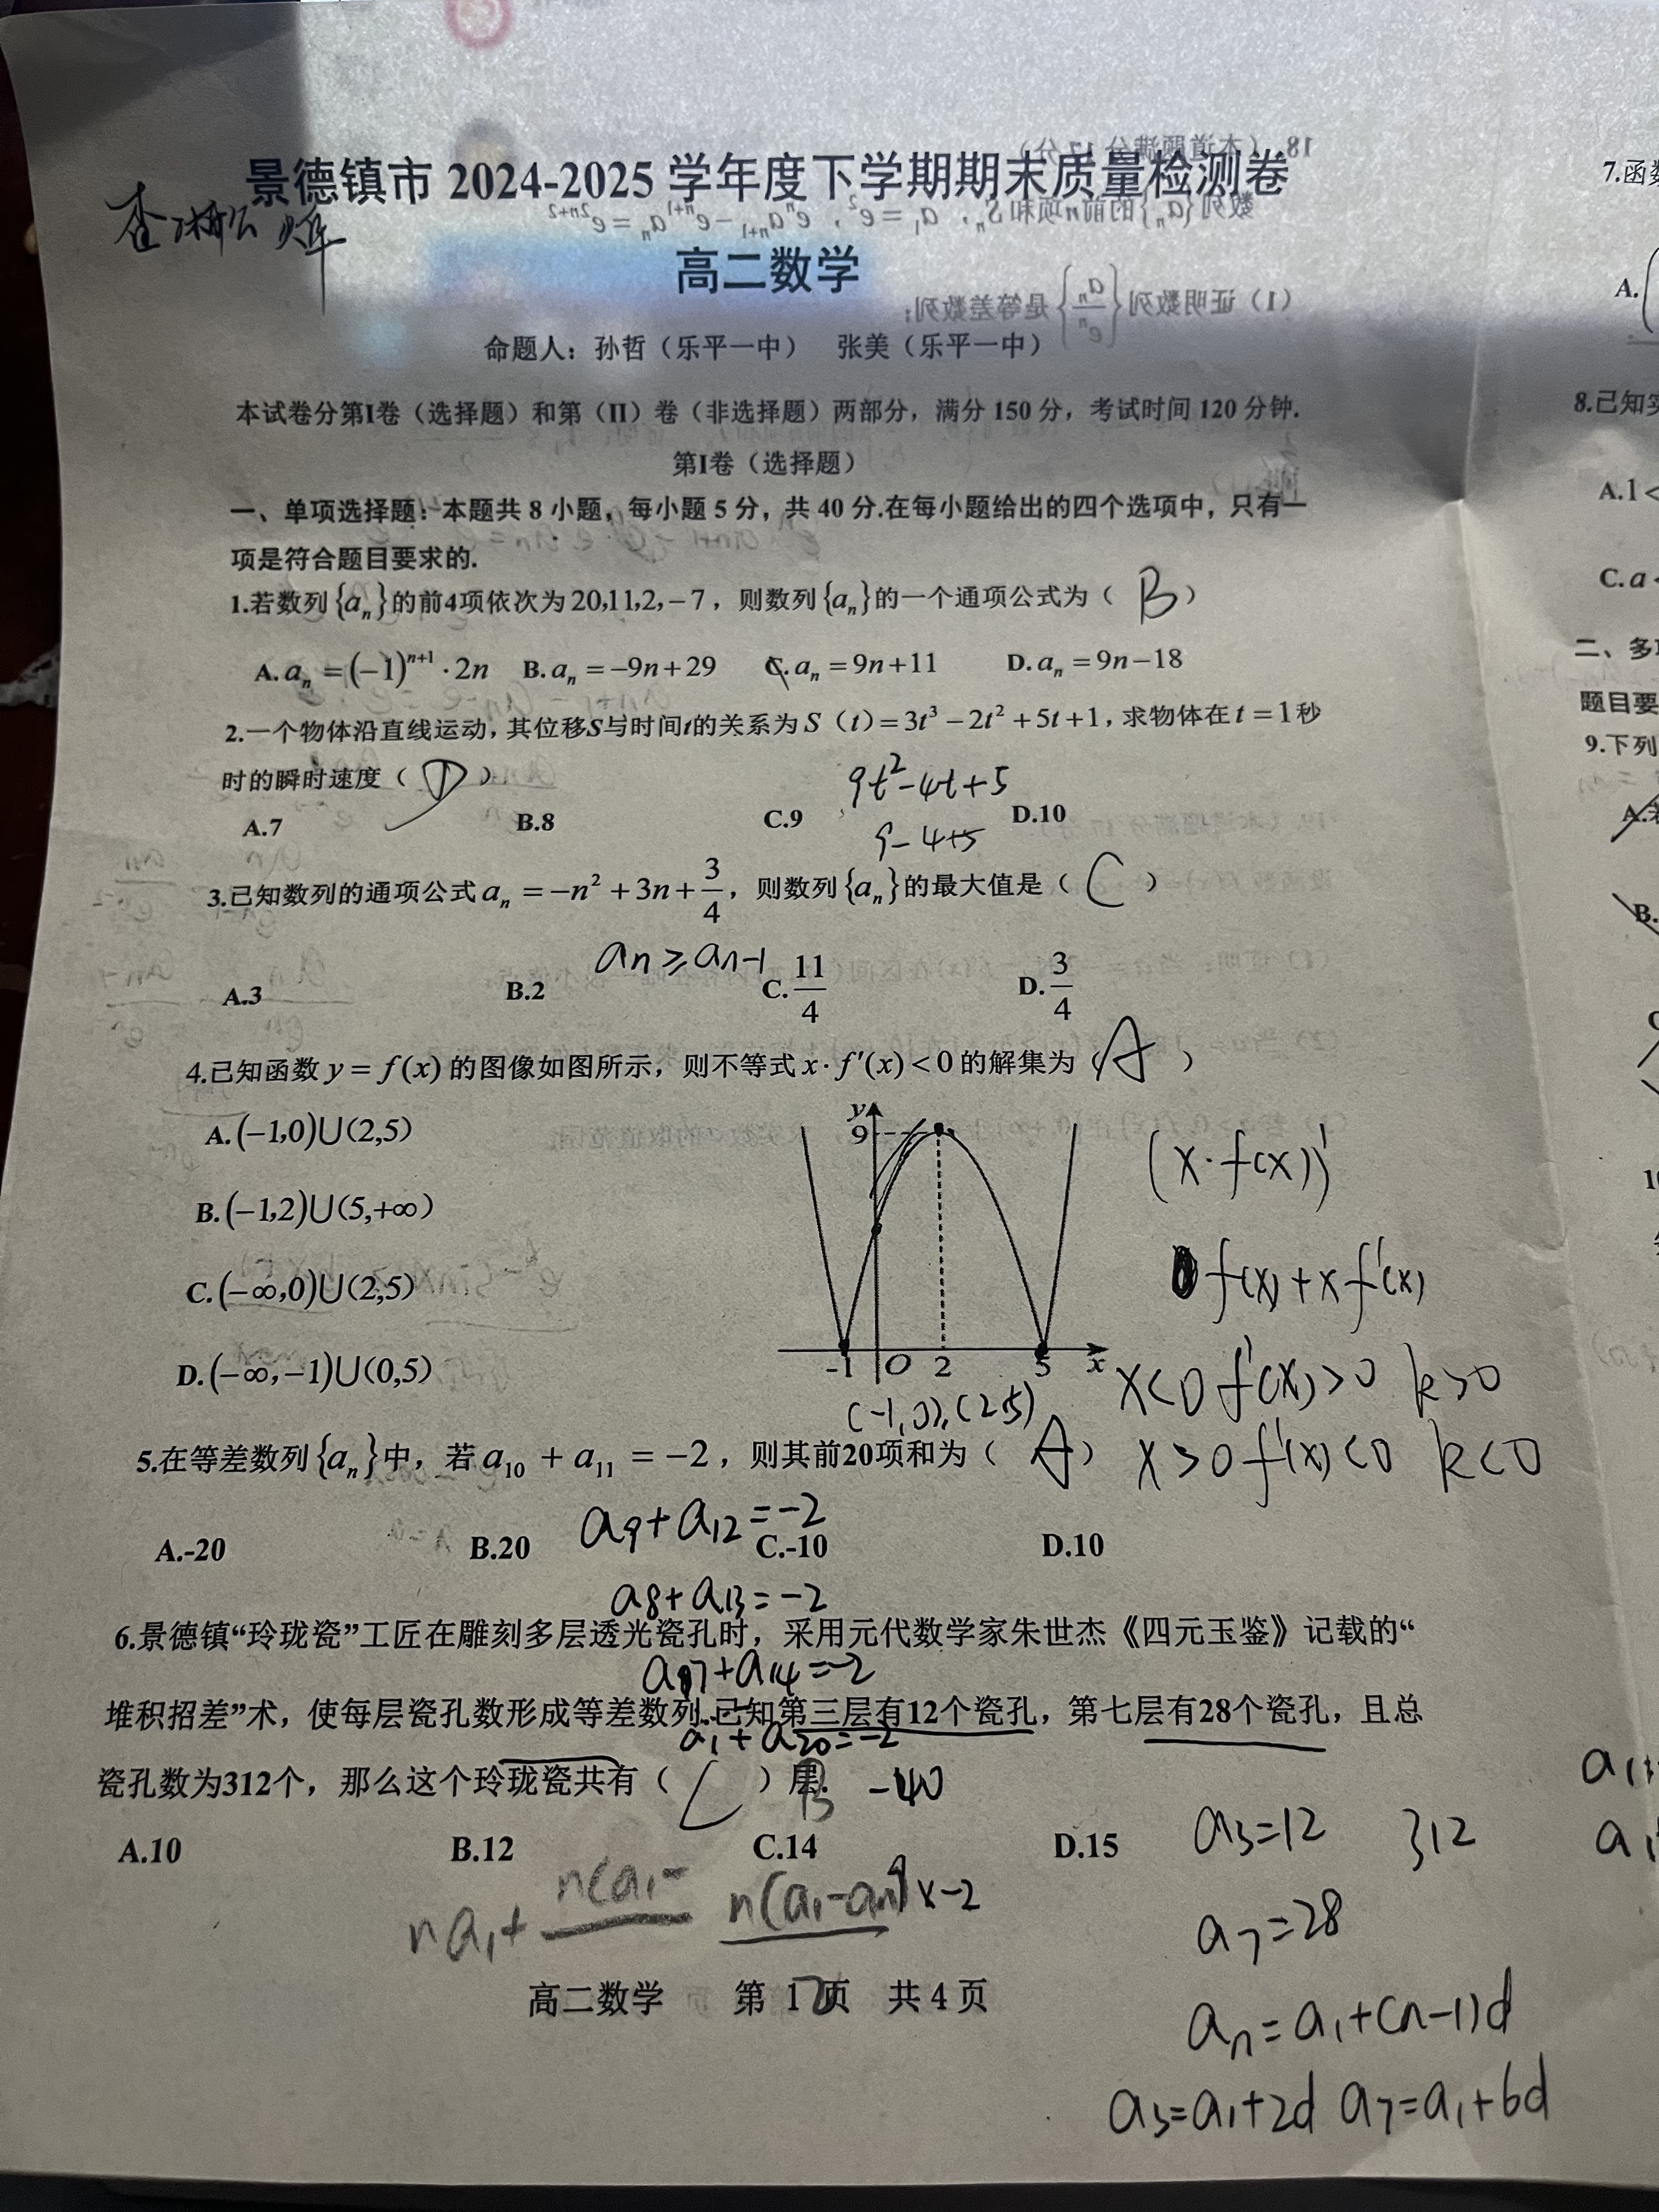 景德镇市 2024-2025 学年度下学期期末质量检测卷
高二数学
命题人：孙哲（乐平一中） 张美（乐平一中）
本试卷分第I卷（选择题）和第（II）卷（非选择题）两部分，满分 150 分，考试时间 120 分钟.
第I卷（选择题）
一、单项选择题：本题共 8 小题，每小题 5 分，共 40 分.在每小题给出的四个选项中，只有一
项是符合题目要求的.
1.若数列{aₙ}的前4项依次为20,11,2,−7，则数列{aₙ}的一个通项公式为（ B ）
A. aₙ = (−1)ⁿ⁺¹·2n B. aₙ = −9n+29 C. aₙ = 9n+11 D. aₙ = 9n−18
2.一个物体沿直线运动，其位移S与时间t的关系为 S（t）= 3t³ − 2t² + 5t + 1，求物体在 t = 1 秒
时的瞬时速度（ D ）
9t²−4t+5
A.7 B.8 C.9 D.10
9−4+5
3.已知数列的通项公式 aₙ = −n² + 3n + 3/4，则数列{aₙ}的最大值是（ C ）
an ≥ an−1
A.3 B.2 C. 11/4 D. 3/4
4.已知函数 y = f(x) 的图像如图所示，则不等式 x·f′(x) < 0 的解集为（ A ）
A. (−1,0)∪(2,5)
B. (−1,2)∪(5,+∞)
C. (−∞,0)∪(2,5)
D. (−∞,−1)∪(0,5)
y
9
-1 O 2 5 x
(x·f(x))′
f(x)+xf′(x)
x<0 f′(x)>0 k>0
(−1,0),(2,5)
x>0 f′(x)<0 k<0
5.在等差数列{aₙ}中，若 a₁₀ + a₁₁ = −2，则其前20项和为（ A ）
a9+a12=−2
A.-20 B.20 C.-10 D.10
a8+a13=−2
6.景德镇“玲珑瓷”工匠在雕刻多层透光瓷孔时，采用元代数学家朱世杰《四元玉鉴》记载的“
a7+a14=−2
堆积招差”术，使每层瓷孔数形成等差数列.已知第三层有12个瓷孔，第七层有28个瓷孔，且总
a1+a20=−2
瓷孔数为312个，那么这个玲珑瓷共有（ C ）层.
−40
A.10 B.12 C.14 D.15
a3=12 312
na1+ n(a1−
×−2
a7=28
高二数学 第 1 页 共 4 页
an=a1+(n−1)d
a3=a1+2d a7=a1+6d
7.函数
A.
8.已知实
A.1<
C.a
二、多
题目要
9.下列
B.